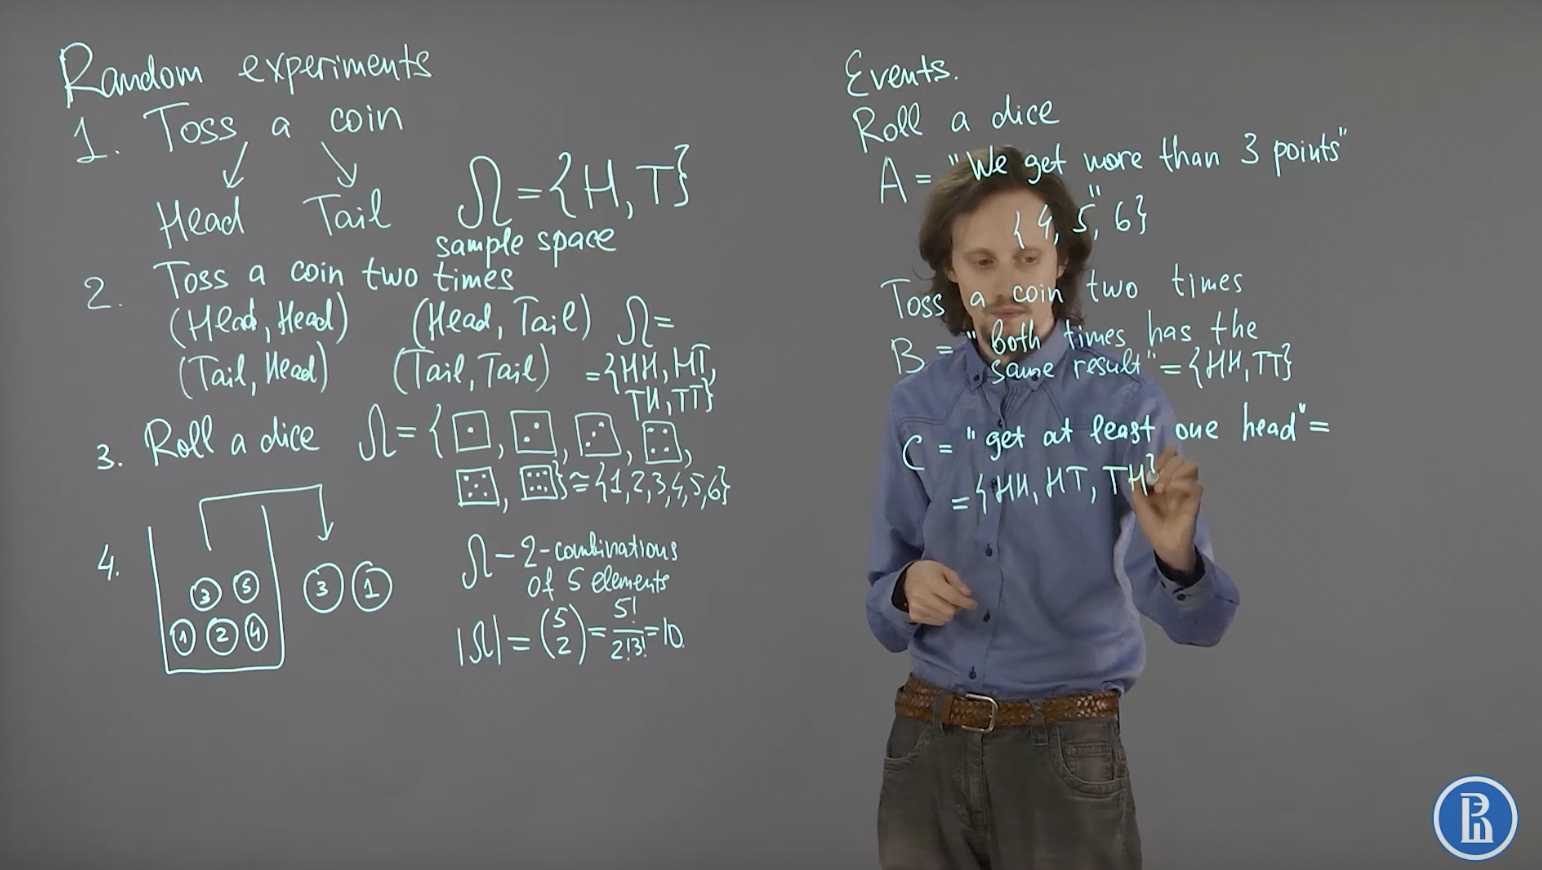 Random experiments
1. Toss a coin
Head Tail
Ω = {H, T}
sample space
2. Toss a coin two times
(Head, Head) (Head, Tail) Ω =
(Tail, Head) (Tail, Tail) = {HH, HT,
TH, TT}
3. Roll a dice Ω = { , , , ,
, } ≅ {1,2,3,4,5,6}
4.
3 5 3 1
1 2 4
Ω – 2-combinations
of 5 elements
|Ω| = (5 2) = 5!/2!3! = 10.
Events.
Roll a dice
A = "We get more than 3 points"
"
{4, 5, 6}
Toss a coin two times
B = "both times has the
same result" = {HH, TT}
C = "get at least one head" =
= {HH, HT, TH}